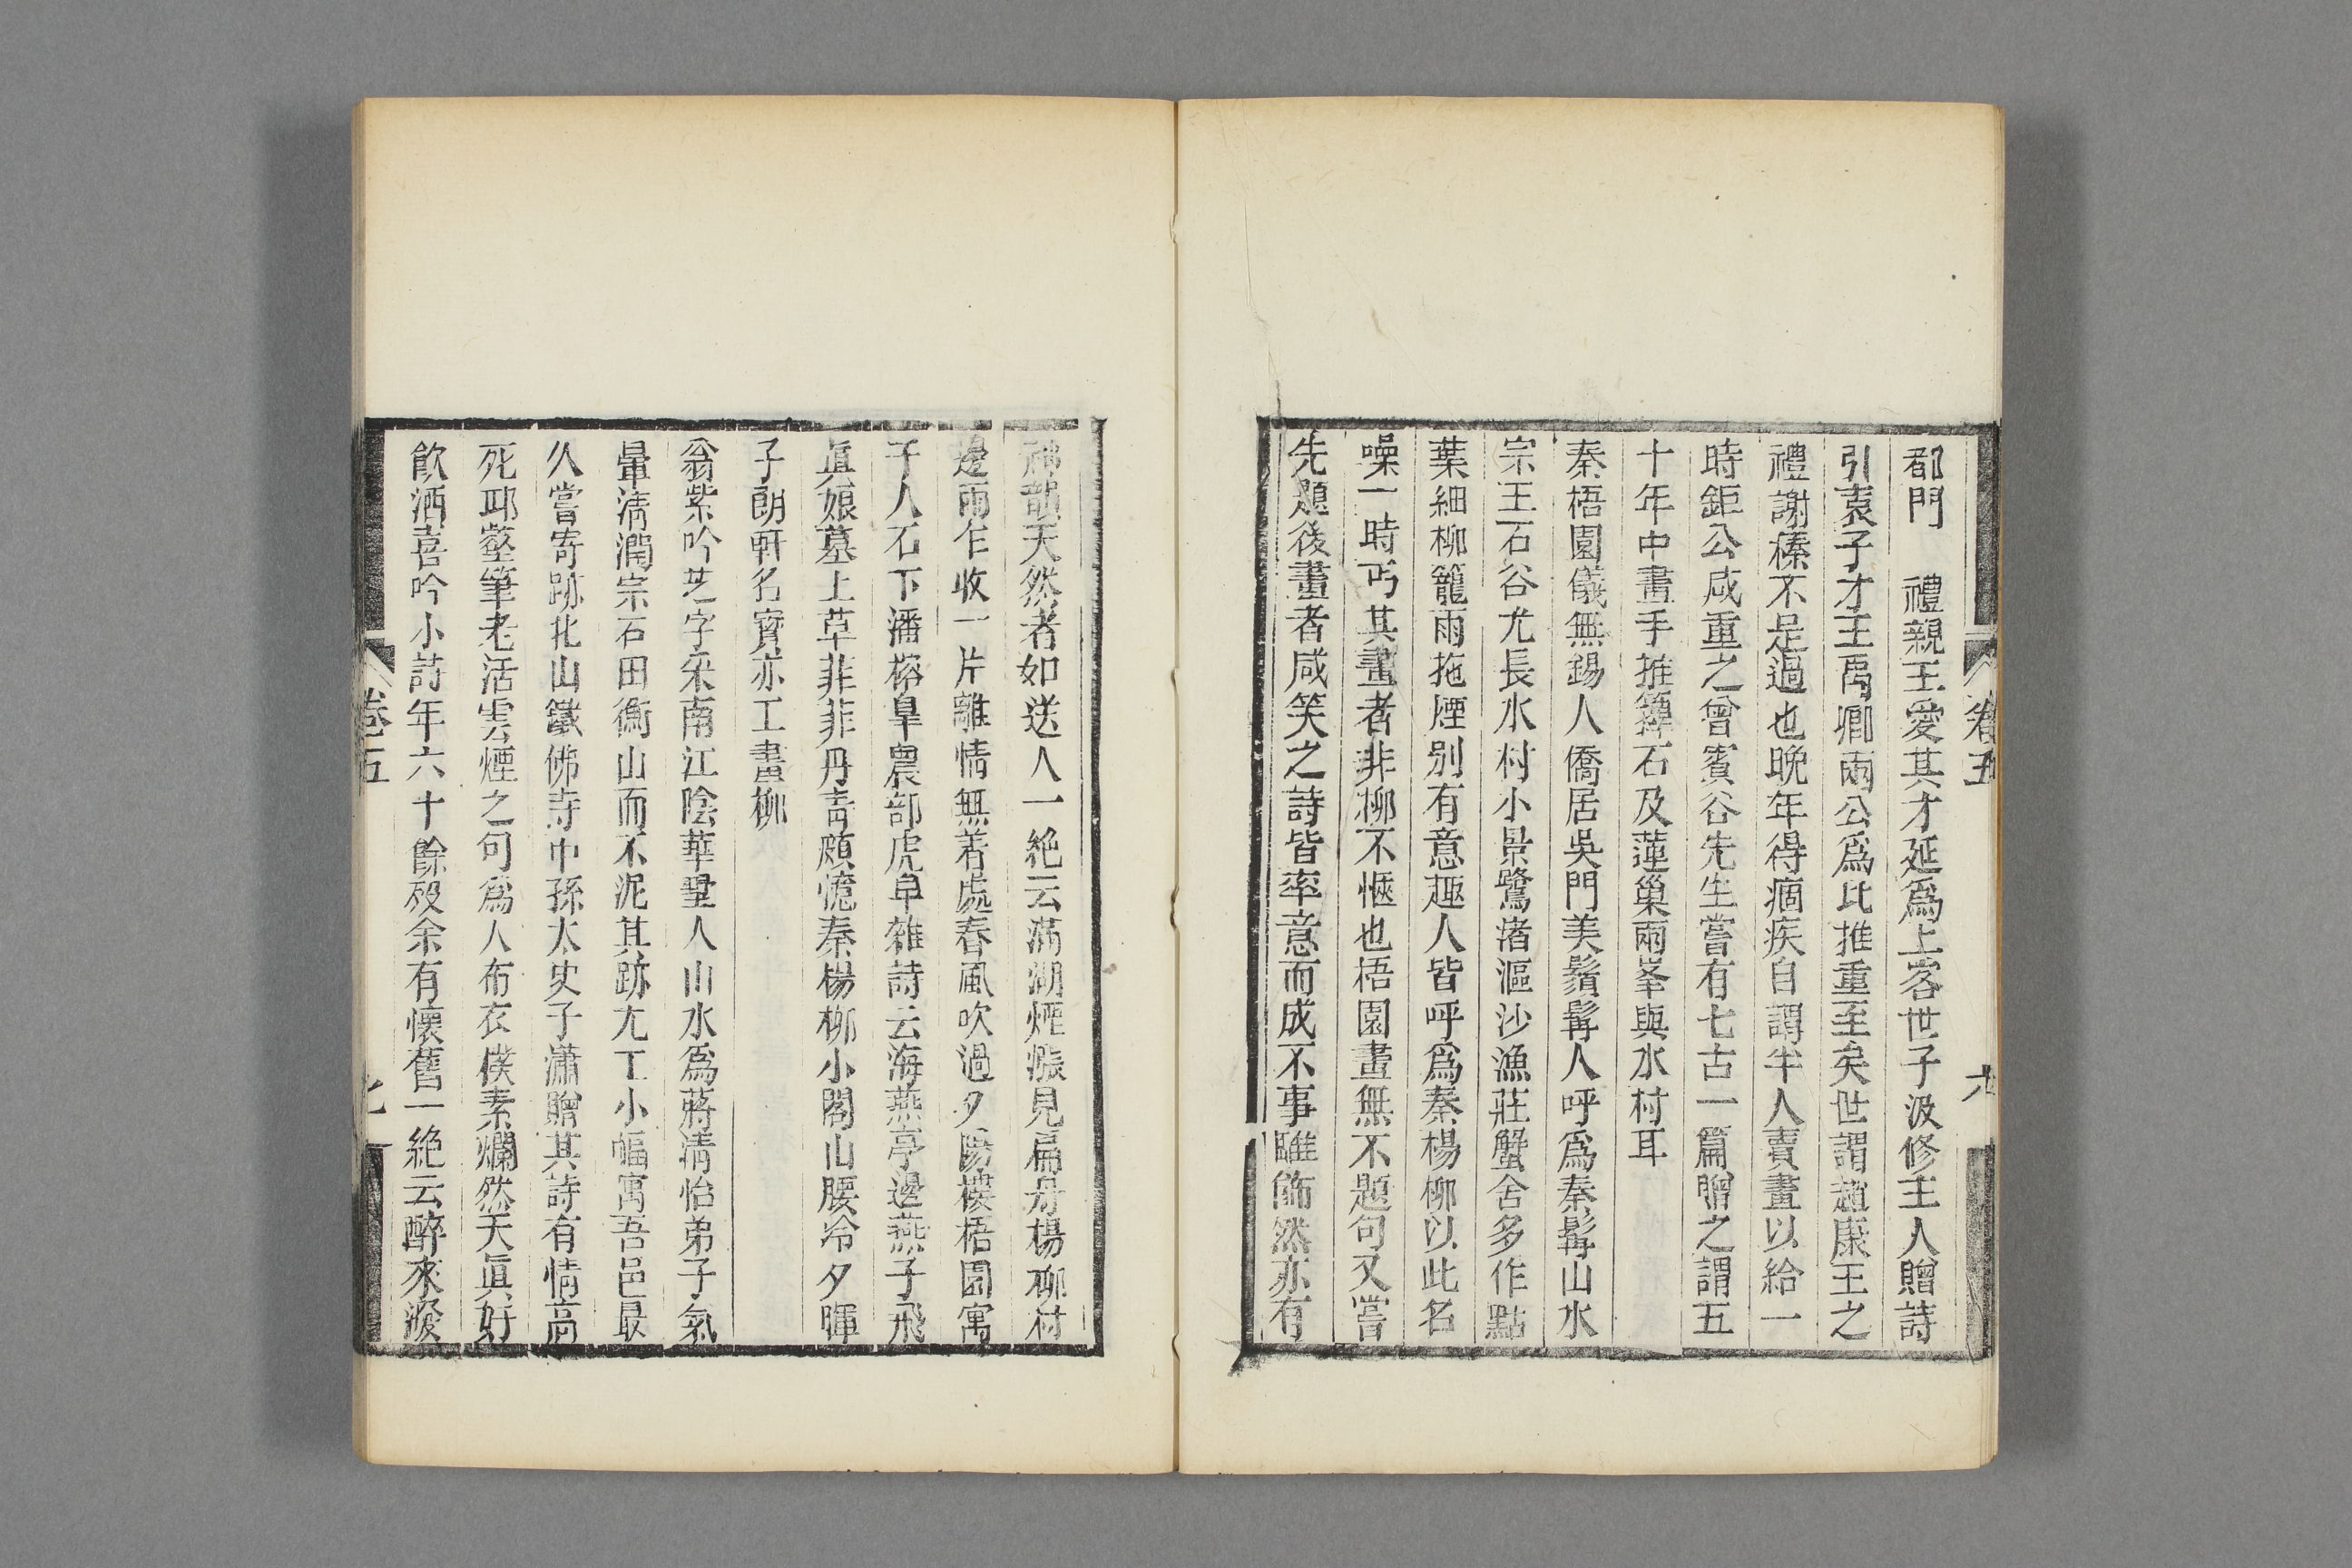 都門　禮親王愛其才延爲上客世子汲修主人贈詩
引袁子才王禹卿兩公爲比推重至矣世謂趙康王之
禮謝榛不足過也晚年得痼疾自謂半人賣畫以給一
時鉅公咸重之曾賓谷先生嘗有七古一篇贈之謂五
十年中畫手推籜石及蓮巢兩峯與水村耳
秦梧園儀無錫人僑居吳門美鬚髯人呼爲秦髯山水
宗王石谷尤長水村小景鷺渚漚沙漁莊蟹舍多作點
葉細柳籠雨拖煙别有意趣人皆呼爲秦楊柳以此名
噪一時丐其畫者非柳不愜也梧園畫無不題句又嘗
先題後畫者咸笑之詩皆率意而成不事雕飾然亦有
卷五
神韻天然者如送人一絶云滿湖煙漲見扁舟楊柳村
邊雨乍收一片離情無著處春風吹過夕陽樓梧園寓
千人石下潘榕皐農部虎阜雜詩云海燕亭邊燕子飛
眞娘墓上草菲菲丹青頗憶秦楊柳小閣山腰冷夕暉
子朗軒名實亦工畫柳
翁紫吟芝字采南江陰華墅人山水爲蔣淸怡弟子氣
暈淸潤宗石田衡山而不泥其跡尤工小幅寓吾邑最
久嘗寄跡北山鐵佛寺中孫太史子瀟贈其詩有情高
死耶壑筆老活雲煙之句爲人布衣僕素爛然天眞好
飮酒喜吟小詩年六十餘歿余有懷舊一絶云醉來潑
卷五